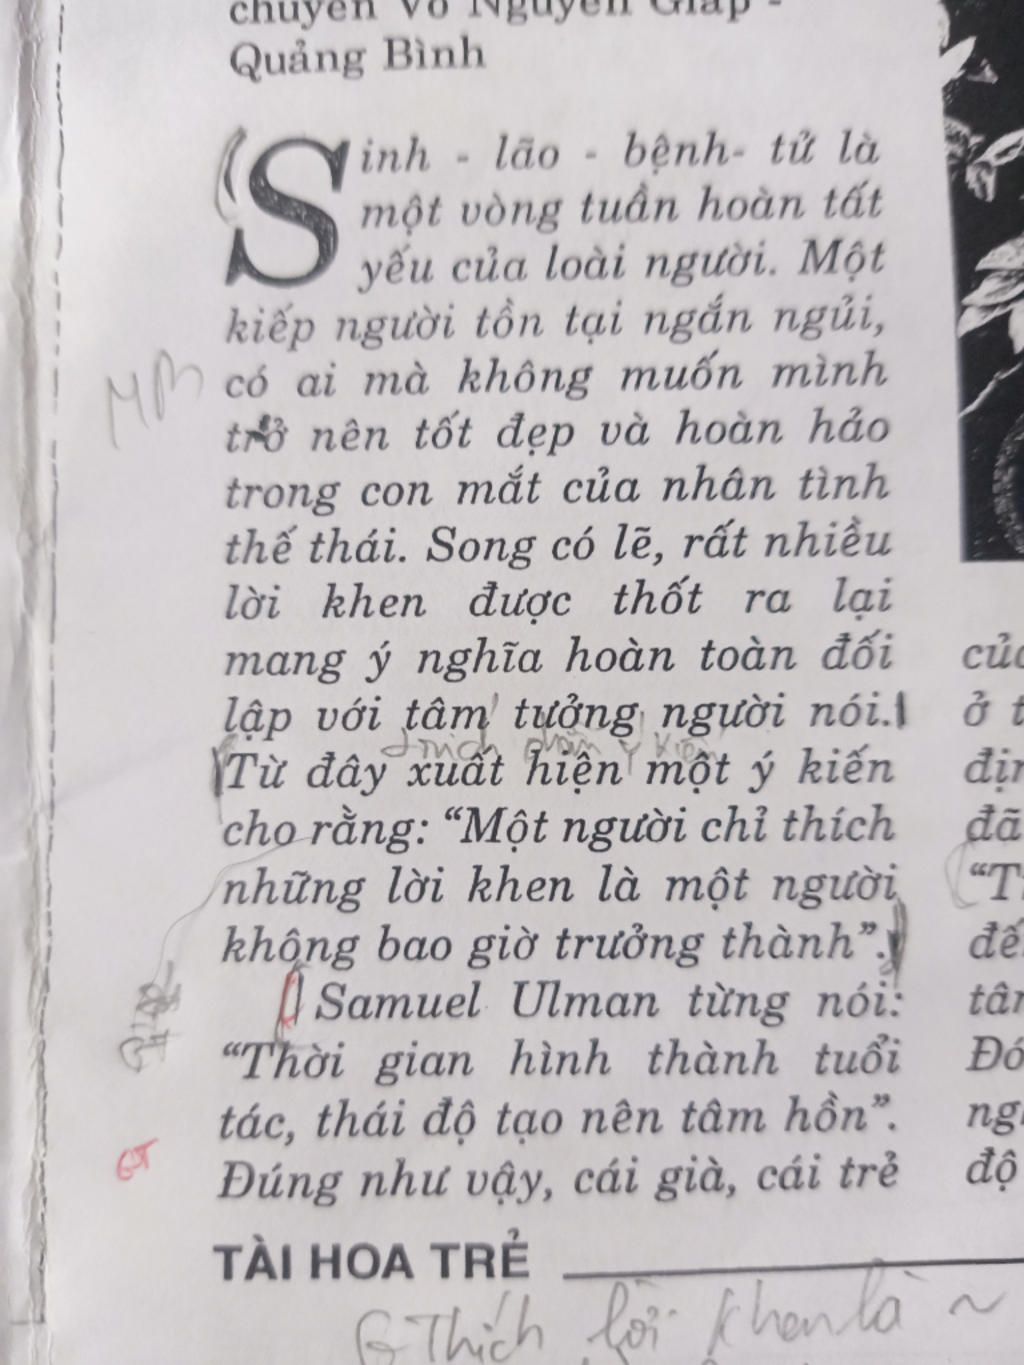 chuyên Võ Nguyên Giáp -
Quảng Bình
Sinh - lão - bệnh- tử là
một vòng tuần hoàn tất
yếu của loài người. Một
kiếp người tồn tại ngắn ngủi,
có ai mà không muốn mình
trở nên tốt đẹp và hoàn hảo
trong con mắt của nhân tình
thế thái. Song có lẽ, rất nhiều
lời khen được thốt ra lại
mang ý nghĩa hoàn toàn đối
lập với tâm tưởng người nói.
Từ đây xuất hiện một ý kiến
cho rằng: “Một người chỉ thích
những lời khen là một người
không bao giờ trưởng thành”.
Samuel Ulman từng nói:
“Thời gian hình thành tuổi
tác, thái độ tạo nên tâm hồn”.
Đúng như vậy, cái già, cái trẻ
MB
GT
TÀI HOA TRẺ
Thích lời khen là ~
củ
ở t
địn
đã
“T
đế
tân
Đó
ng
độ